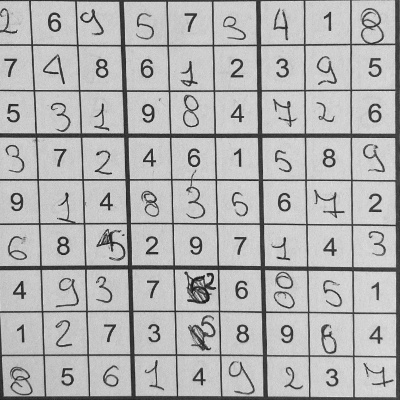 2 6 9 5 7 3 4 1 8
7 4 8 6 1 2 3 9 5
5 3 1 9 8 4 7 2 6
3 7 2 4 6 1 5 8 9
9 1 4 8 3 5 6 7 2
6 8 5 2 9 7 1 4 3
4 9 3 7 2 6 8 5 1
1 2 7 3 5 8 9 6 4
8 5 6 1 4 9 2 3 7